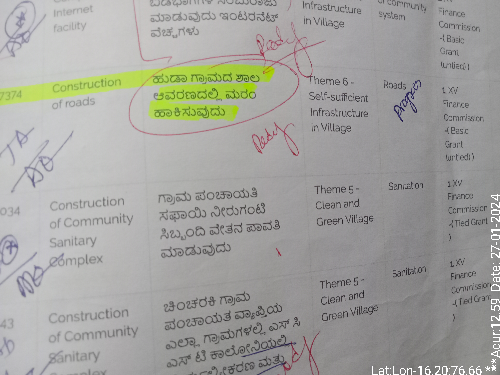 Internet
facility
ಮಾಡುವುದು ಇಂಟರ್‌ನೆಟ್
ವೆಚ್ಚಗಳು
Infrastructure
in Village
of community
system
Finance
Commission
-( Basic
Grant
(untied) )
Ready
7374
Construction
of roads
ಹುಡಾ ಗ್ರಾಮದ ಶಾಲ
ಆವರಣದಲ್ಲಿ ಮರಂ
ಹಾಕಿಸುವುದು
Theme 6 -
Self-sufficient
Infrastructure
in Village
Roads
Progress
1. XV
Finance
Commission
-( Basic
Grant
(untied) )
Ready
034
Construction
of Community
Sanitary
Complex
ಗ್ರಾಮ ಪಂಚಾಯತಿ
ಸಫಾಯಿ ನೀರುಗಂಟಿ
ಸಿಬ್ಬಂದಿ ವೇತನ ಪಾವತಿ
ಮಾಡುವುದು
Theme 5 -
Clean and
Green Village
Sanitation
1. XV
Finance
Commission
-( Tied Grant
)
43
Construction
of Community
Sanitary
ಚಿಂಚರಕಿ ಗ್ರಾಮ
ಪಂಚಾಯತ ವ್ಯಾಪ್ತಿಯ
ಎಲ್ಲಾ ಗ್ರಾಮಗಳಲ್ಲಿ ಎಸ್ ಸಿ
ಎಸ್ ಟಿ ಕಾಲೋನಿಯಲ್ಲಿ
ಮತ್ತು
Theme 5 -
Clean and
Green Village
Sanitation
1. XV
Finance
Commission
-( Tied Grant
)
Lat:Lon-16.20:76.66
**Acur:12.59 Date: 27-01-2024